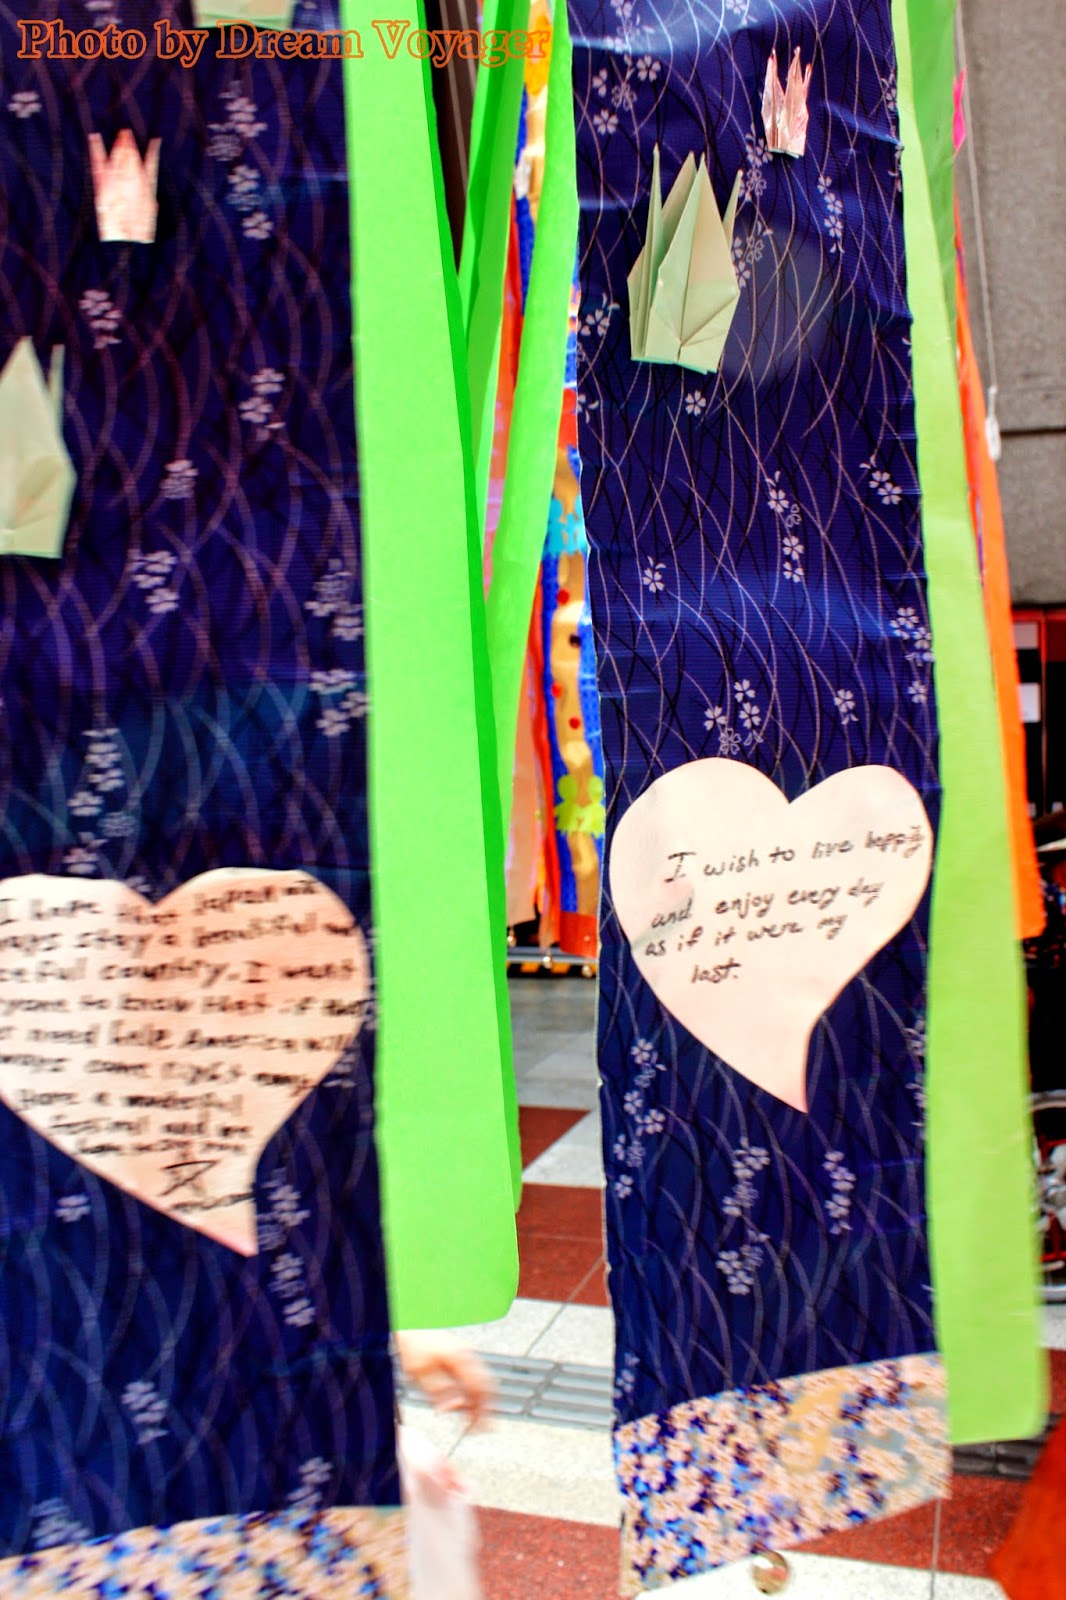 Photo by Dream Voyager
I hope that Japan will
ways stay a beautiful and
ceful country. I want
ryone to know that if
need help America will
ways come right away
Have a wonderful
festival and
I wish to live happily
and enjoy every day
as if it were my
last.